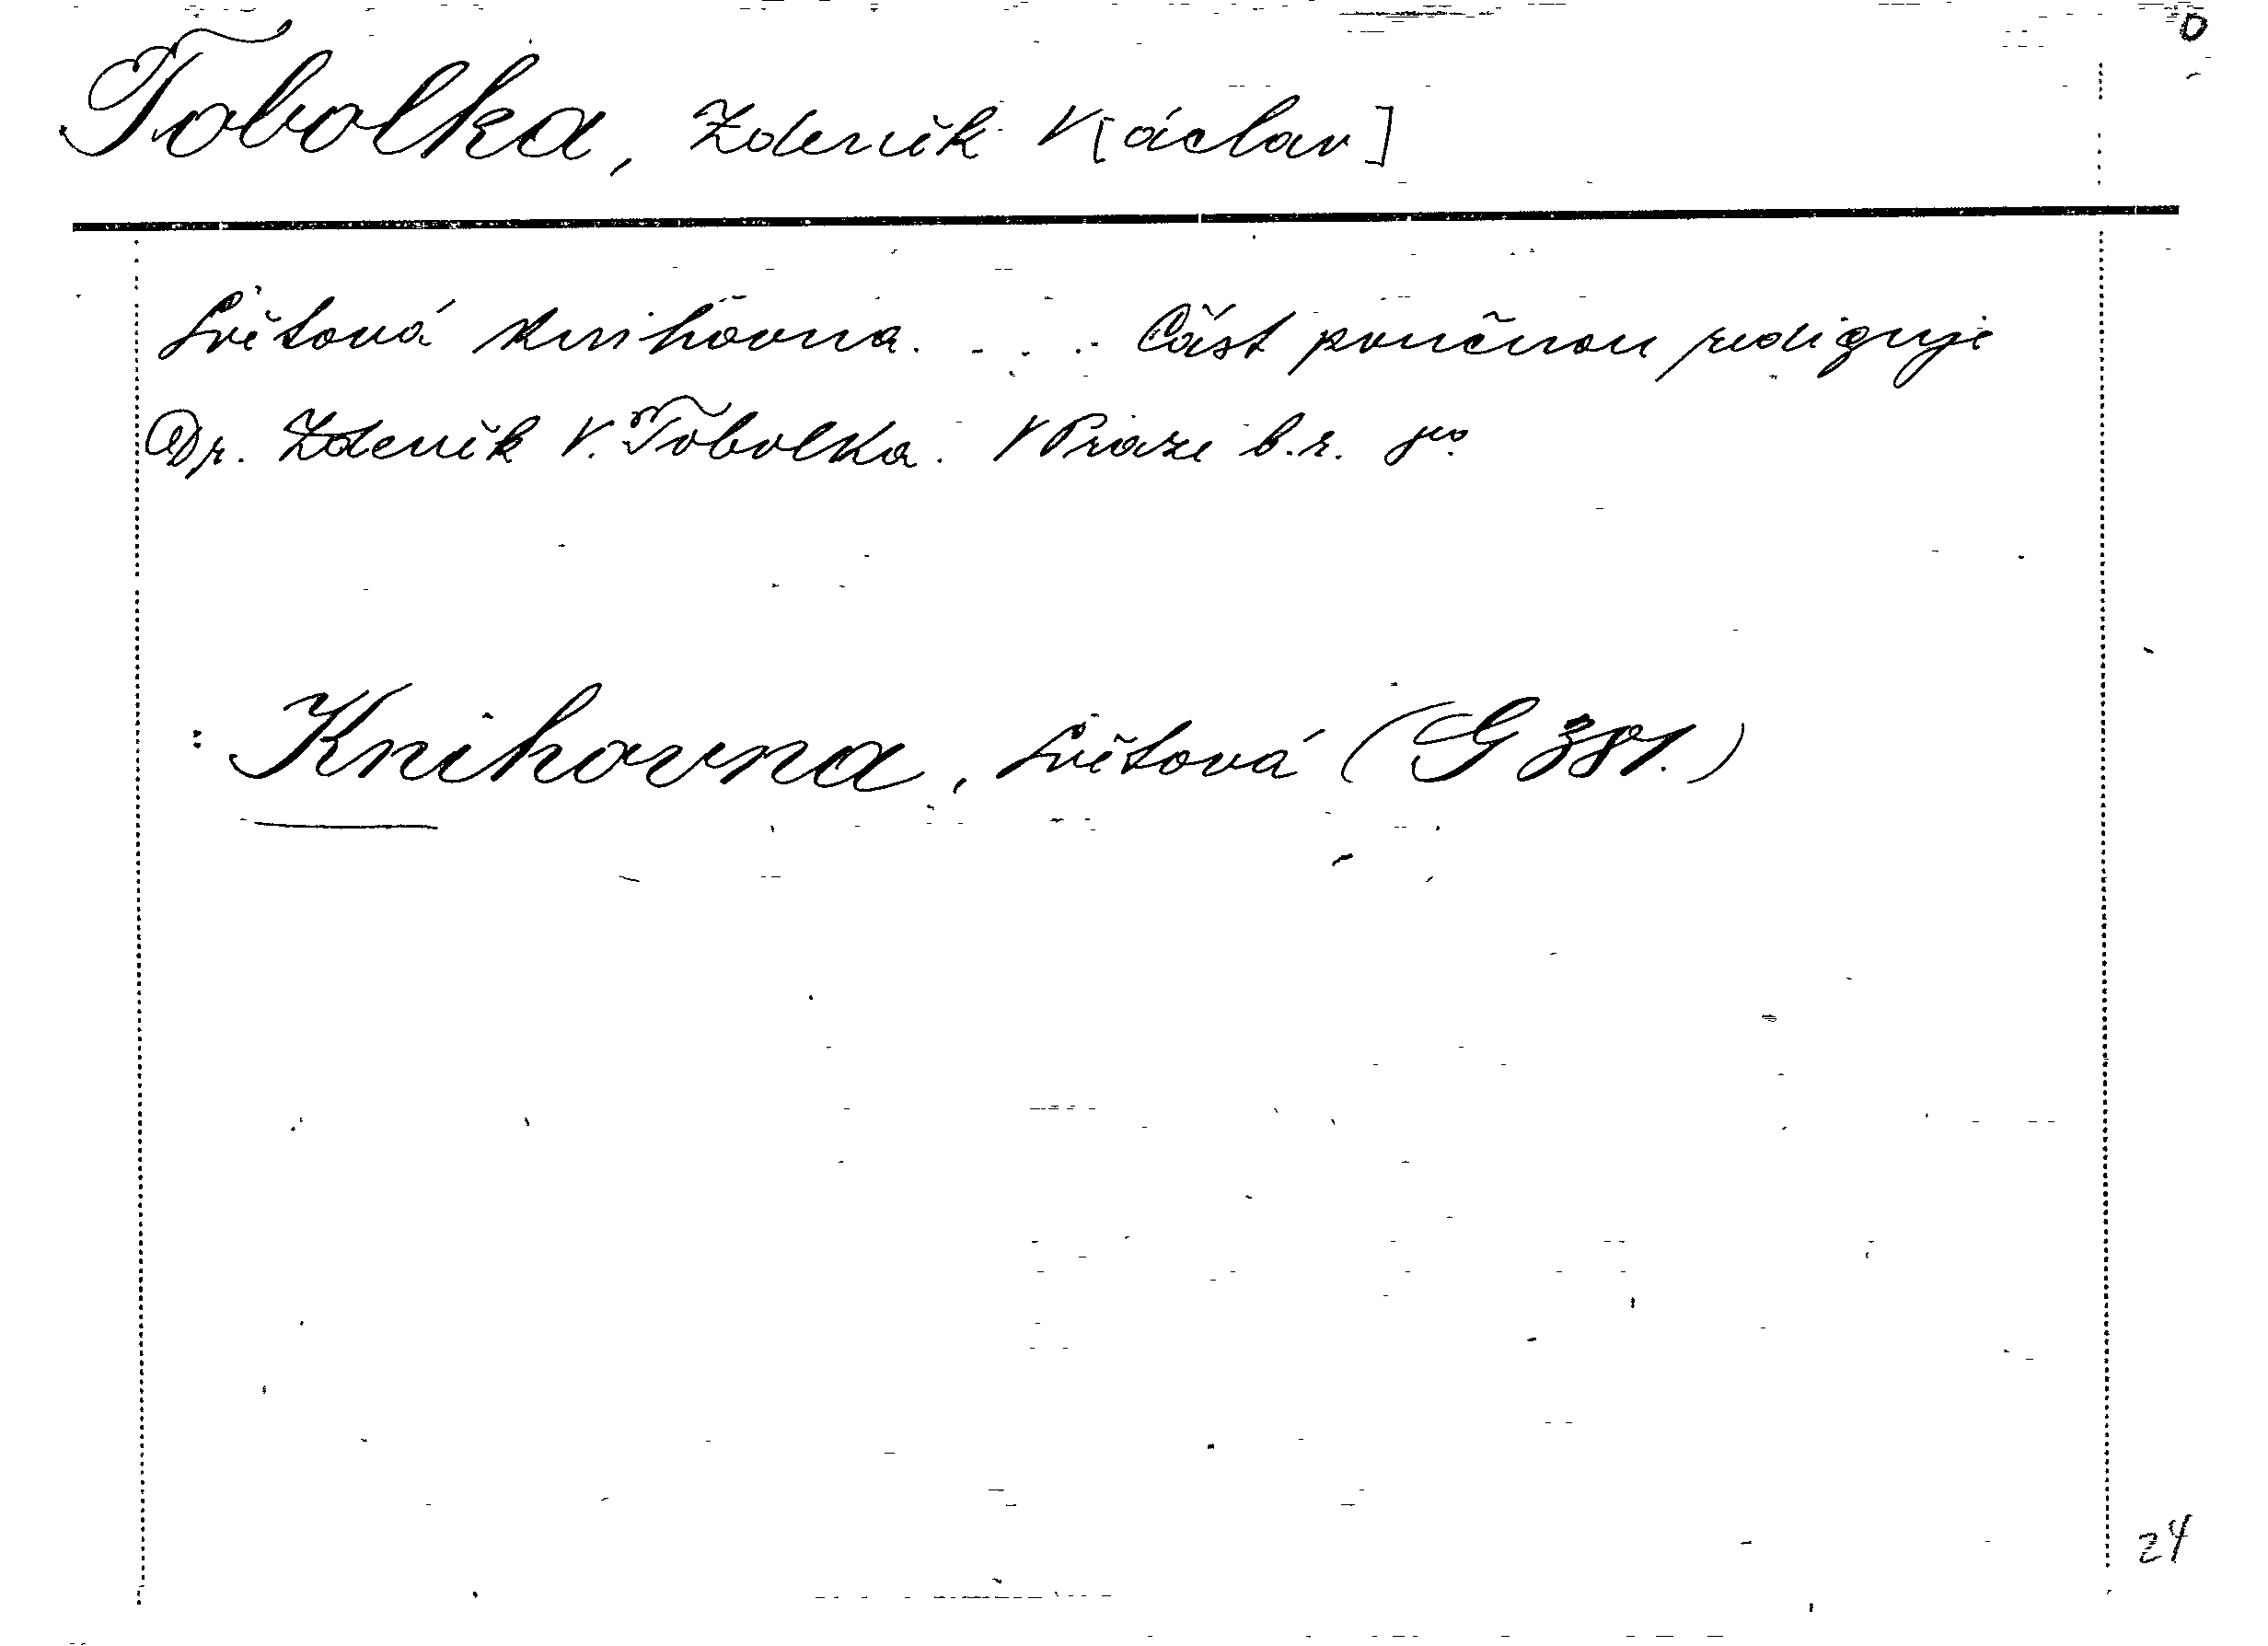 o
Tobolka, Zdeněk V[áclav]
Světová knihovna. . . . Část poučnou rediguje
Dr. Zdeněk V. Tobolka. V Praze b. r. 8º.
: Knihovna, Světová (G 381.)
24